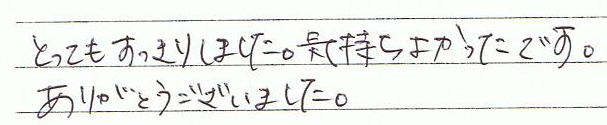 とってもすっきりしました。気持ちよかったです。
ありがとうございました。